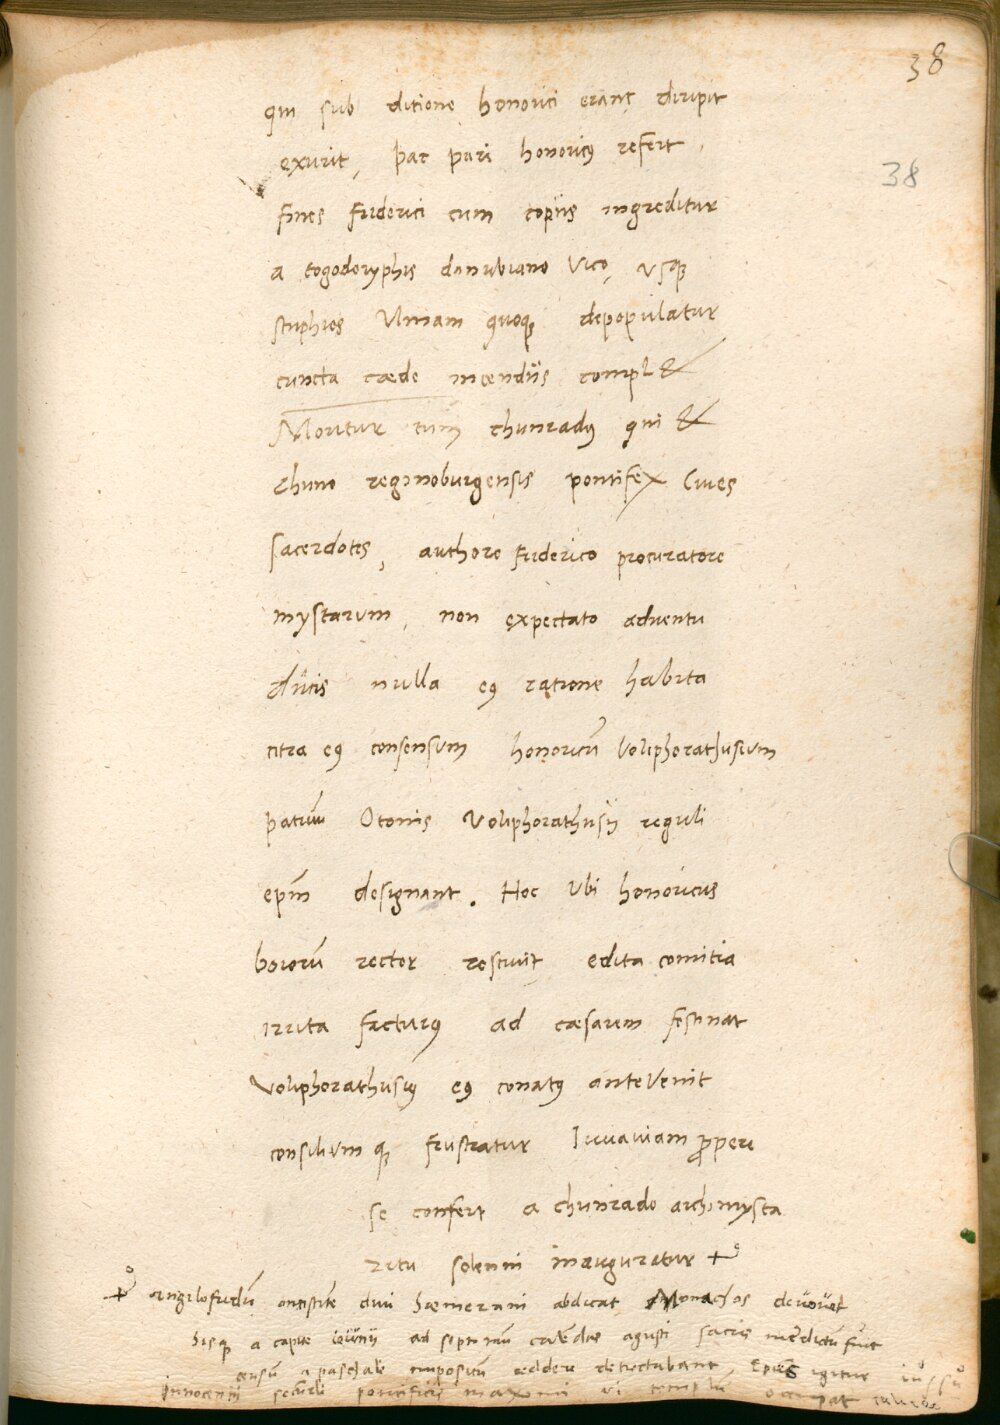 38
38
qui sub ditione honorici erant diripit
exurit, par pari honoricus refert,
fines friderici cum copiis ingreditur
a togodoryphis danubiano vico, usque
Ulmam quoque depopulatur
cuncta cæde incendiis complet
Moritur tum chunradus qui et
chuno reginoburgensis pontifex Cives
sacerdotes, authore friderico procuratore
mystarum, non expectato adventu
ducis nulla eius ratione habita
citra eius consensum honoricum Voliphorathusium
patruum Otonis Voliphorathusii reguli
epm designant. Hoc Ubi honoricus
boiorum rector rescivit edita comitia
irrita facturus ad cæsarem festinat
Voliphorathusius eius conatus antevenit
consilium que frustratur Iuvaviam propere
se confert a chunrado archimysta
ritu solenni inauguratur
engilofridum antistitem divi hæmerani abdicat Monachos devovet
hisque a capite ieiunii ad septimum calendas agusti sacris interdictum fuit
censum a paschale impositum reddere detrectabant, Epus igitur iussu
innocentii secundi pontificis maxomi vi templum occupat